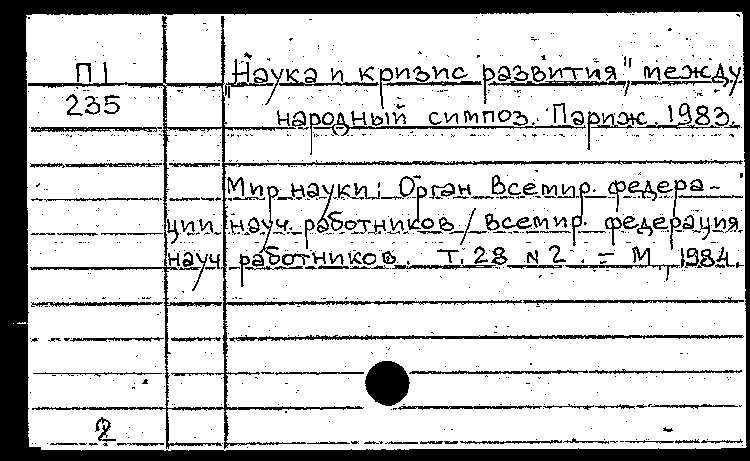 П1
235
"Наука и кризис развития", между
народный симпоз. Париж. 1983.
Мир науки: Орган Всемир. федера-
ции науч. работников / всемир. федерация
науч. работников. Т. 28 N 2. = М., 1984.
2